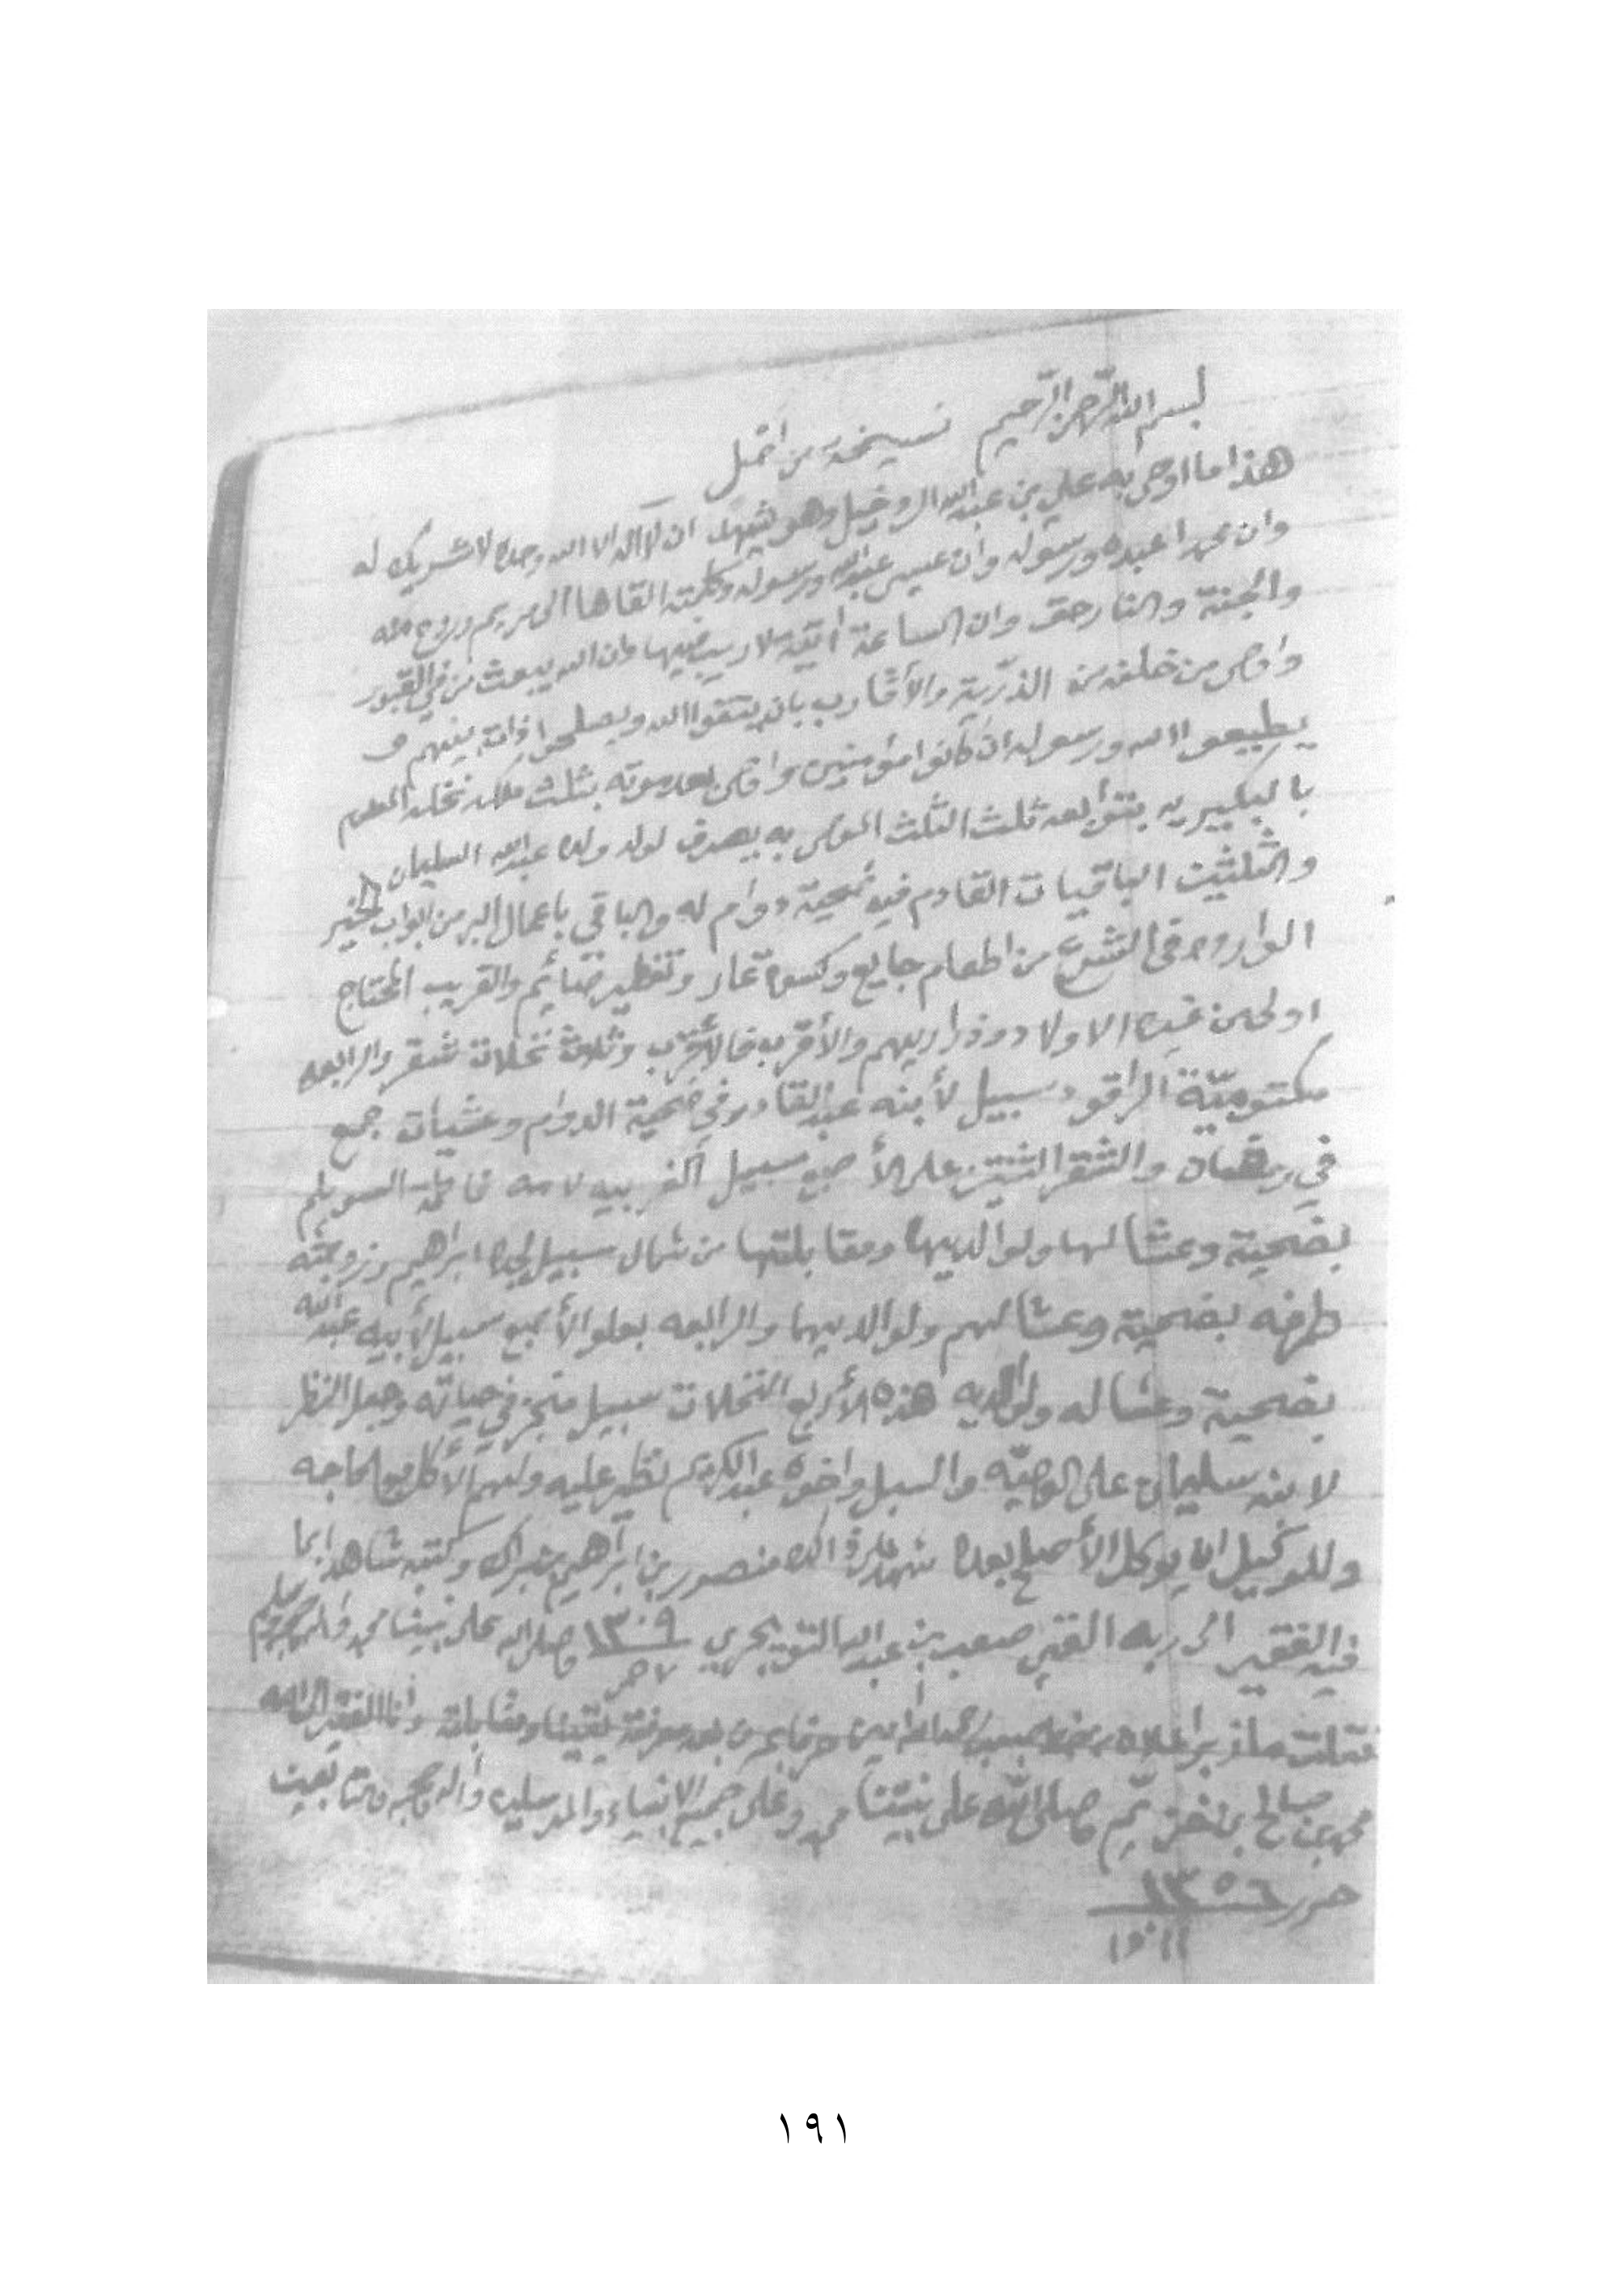 بسم الله الرحمن الرحيم نسيخة من اصل
هذا ما اوصى به علي بن عبدالله الروخيل وهو يشهد ان لا اله الا الله وحده لا شريك له
وان محمدا عبده ورسوله وان عيسى عبدالله ورسوله وكلمته القاها الى مريم وروح منه
والجنة والنار حق وان الساعة اتية لا ريب فيها وان الله يبعث من في القبور
واوصى من خلفه من الذرية والأقارب بان يتقوا الله ويصلحوا ذات بينهم و
يطيعوا الله ورسوله ان كانوا مؤمنين واوصى بعد موته بثلث ملكه نخله المعلوم
بالبكيريه ثلث الثلث الموصى به يصرف لولد ولده عبدالله السليمان
والثلثين الباقيات القادم فيه ضحية دوام له والباقي باعمال البر من ابواب الخير
الوارده في الشرع من اطعام جايع وكسوة عار وتفطير صائم والقريب المحتاج
اولى من غيره الاولاد وذراريهم والأقرب فالأقرب وثلاث نخلات شقر والرابعه
مكتومية سبيل لأبنه عبدالقادر في ضحية الدوام وعشيات جمع
في رمضان والشقر الثنتين على الأصبع سبيل الغربيه لامه السويلم
بضحية وعشا لها ولوالديها ومقابلتها من شمال سبيل ابراهيم وزوجته
طرفه بضحية وعشا لهم ولوالديهما والرابعه بعلو الأصبع سبيل لأبيه عبدالله
بضحية وعشا له ولوالديه هذه الأربع النخلات سبيل منجز في حياته وجعل النظر
لابنه سليمان على الوصيّه والسبل واخوه عبدالكريم نظير عليه ولهم الأكل مع الحاجه
وللوكيل ان يوكل الأصلح بعده شهد على ذالك منصور بن ابراهيم وكتبه شاهد ابما
فيه الفقير الى ربه صعب بن عبدالله التويجري ١٣٠٩ وصلى الله على نبينا محمد واله وصحبه وسلم
نقلت ما زبر اعلاه من خط صعب بن عبدالله من بعد معرفته يقينا ومقابلة وانا الفقير الى الله
محمد بن صالح بن خزيّم صلى الله على نبيّنا محمد وعلى جميع الانبياء والمرسلين واله وصحبه
حرر ١٣٥٦
١٥ ١١
١٩١